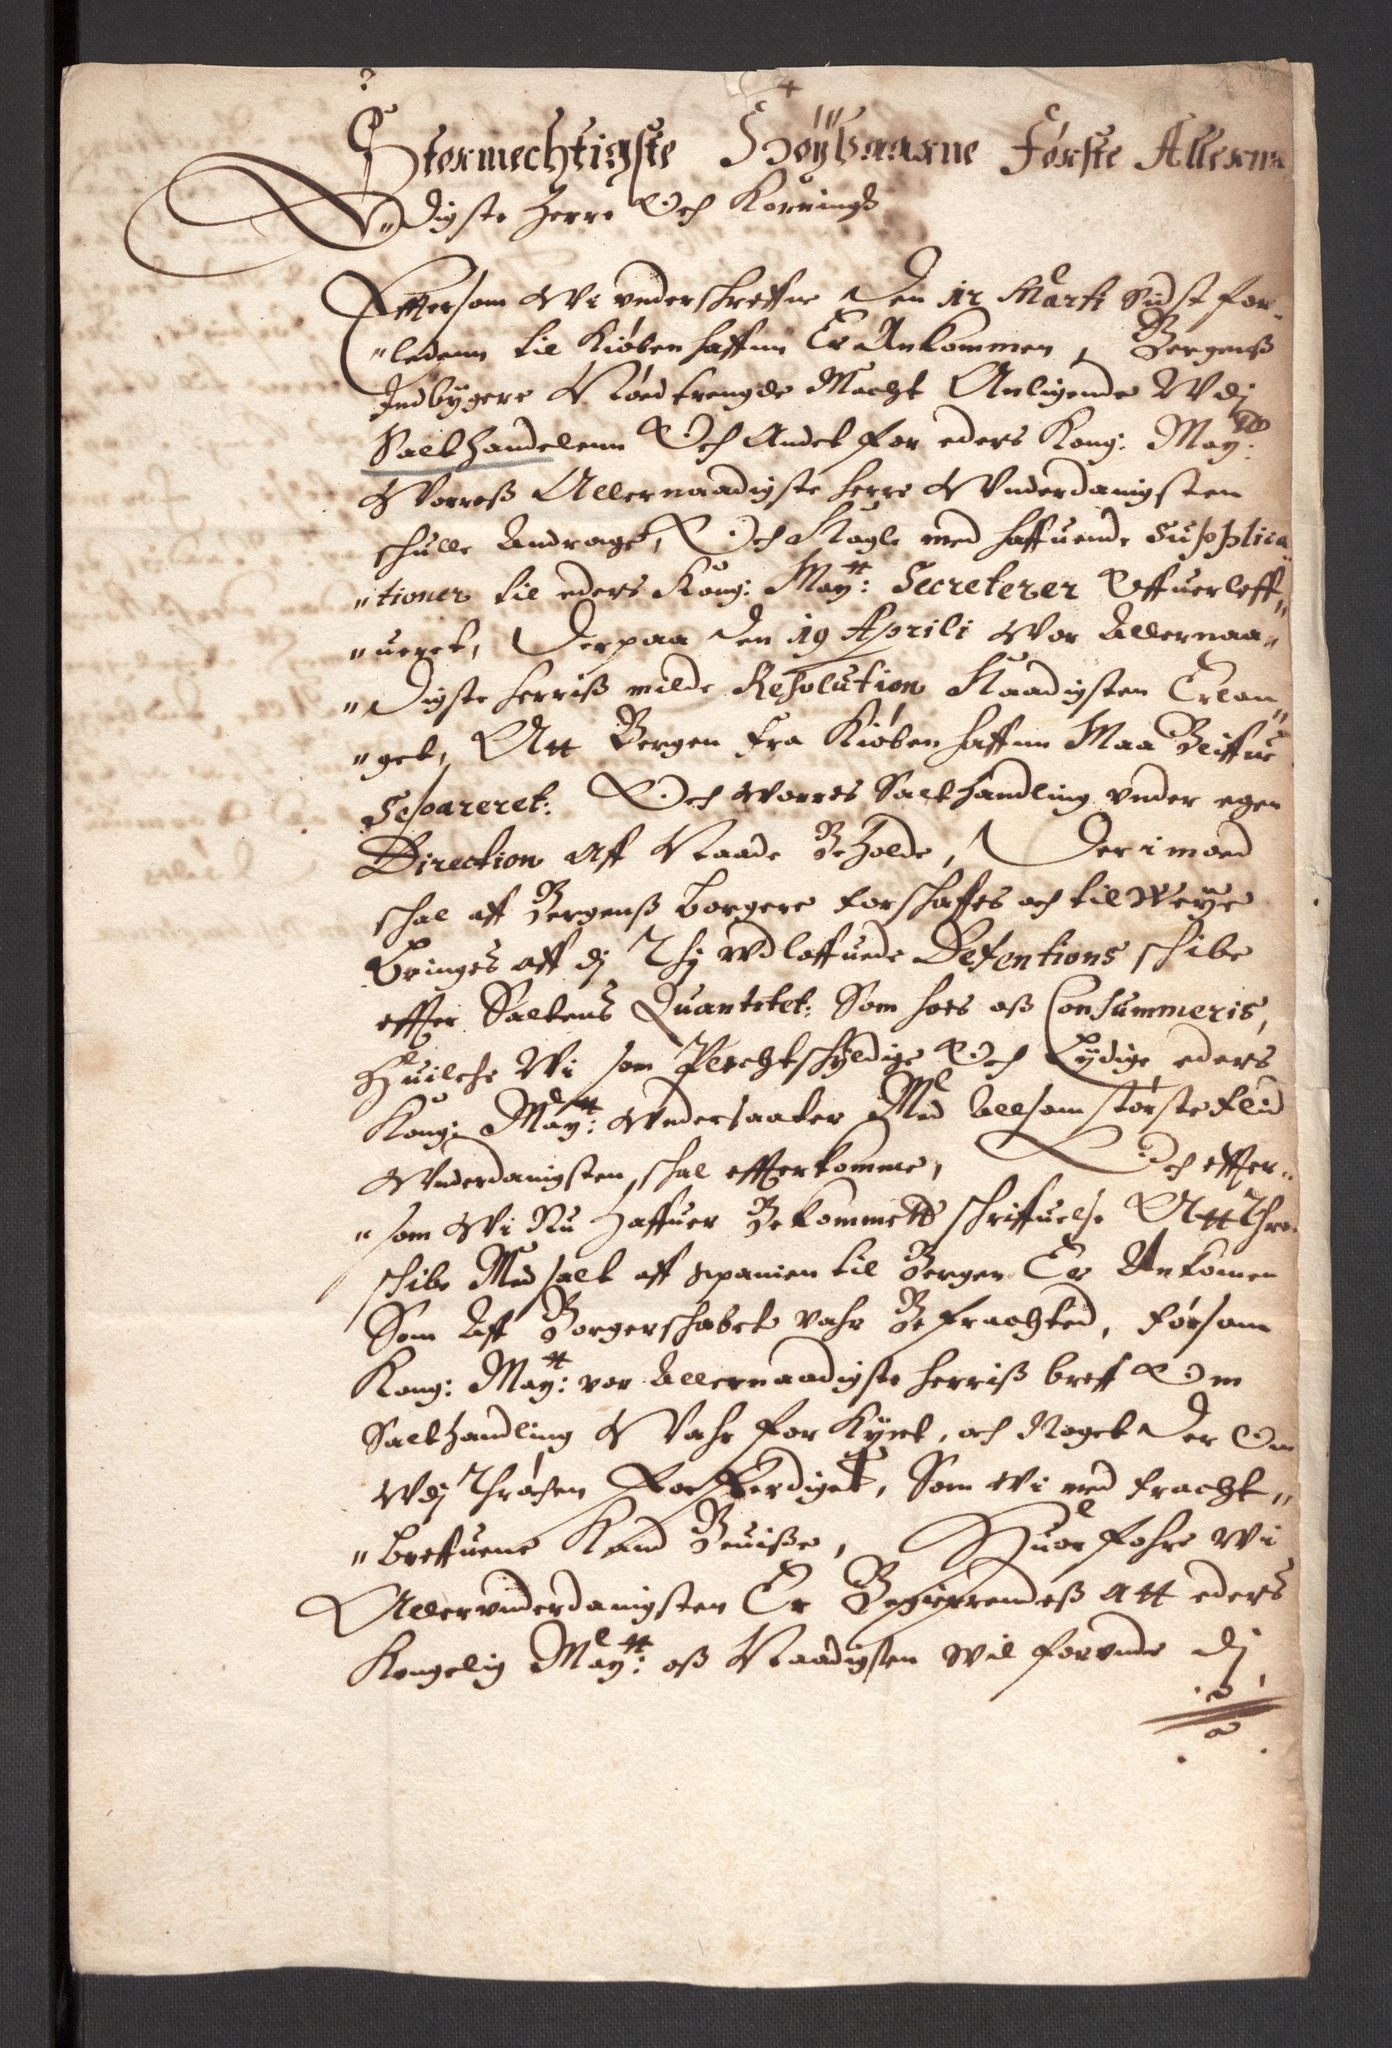 Stormechtigste Höybaarne Förste Allerna
"digste Herre Och Konningh
Efftersom Wi vnderschreffne Den 12 Marti Sidst for-
"ledenn til Kiöbenhaffnn Er Ankommen, Bergenß
Indbyggere Nöedtrengde Macht Anligende Wdj
Salthandelenn Och Andet for eders Kong: May:tts
Worreß Allernaadigste herre Wnderdanigsten
schulle Andraget, Och Nogle med haffuende Supplica
"tioner til eders Kong: May:tt Secreterer Offuerleff"
"ueret, Derpaa Den 19 Aprili Wor Allernaa"
"digste herriß milde Resolution Naadigsten Erlan"
"get, Att Bergen fra Kiöbenhaffnn Maa Bliffue
Separeret: Och Worres Salthandling vnder egen
Direction Aff Naade Beholde, Der imoed
schal aff Bergenß borgere forschaffes och til Weye
Bringes aff dj Thj Wdloffuede Defentions schibe
effter Saltens Quantitet: Som hoes oß Consummeris,
Huilche Wi som Plechtschyldige Och Lydige eders
Kong: May:tt Wndersaatter Med Allsom störste flid
Wnderdanigsten schal effterkomme, Och effter-
"som Wi Nu haffuer Bekommett schriffuelse Att Thre
schibe Med salt aff Spanien til Bergen Er Ankomen
Som Aff Borgerschabet vahr Befrachted, Försom
Kong: May:tt vor Allernaadigste herriß breff Om
Salthandling Wahr forkynt, och Noget Der Om
Wdj Thröchen Forferdiget, Som Wi med fracht"
"breffuene Kand Beuiße, Huorfohre Wi
Allervnderdanigsten Er Begierrendeß att eders
Kongelig May:tt oß Naadigsten Wil forvnde dj